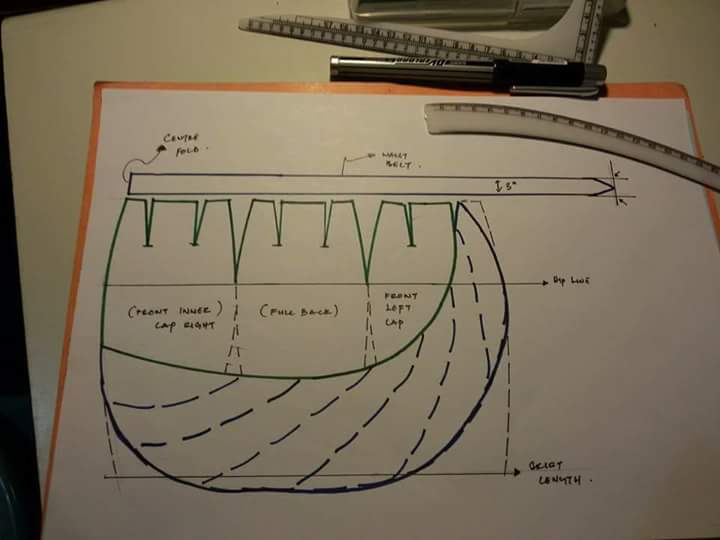 CENTRE
FOLD.
WAIST
BELT.
3"
HIP LINE
(FRONT INNER)
LAP RIGHT
(FULL BACK)
FRONT
LEFT
LAP
SKIRT
LENGTH.